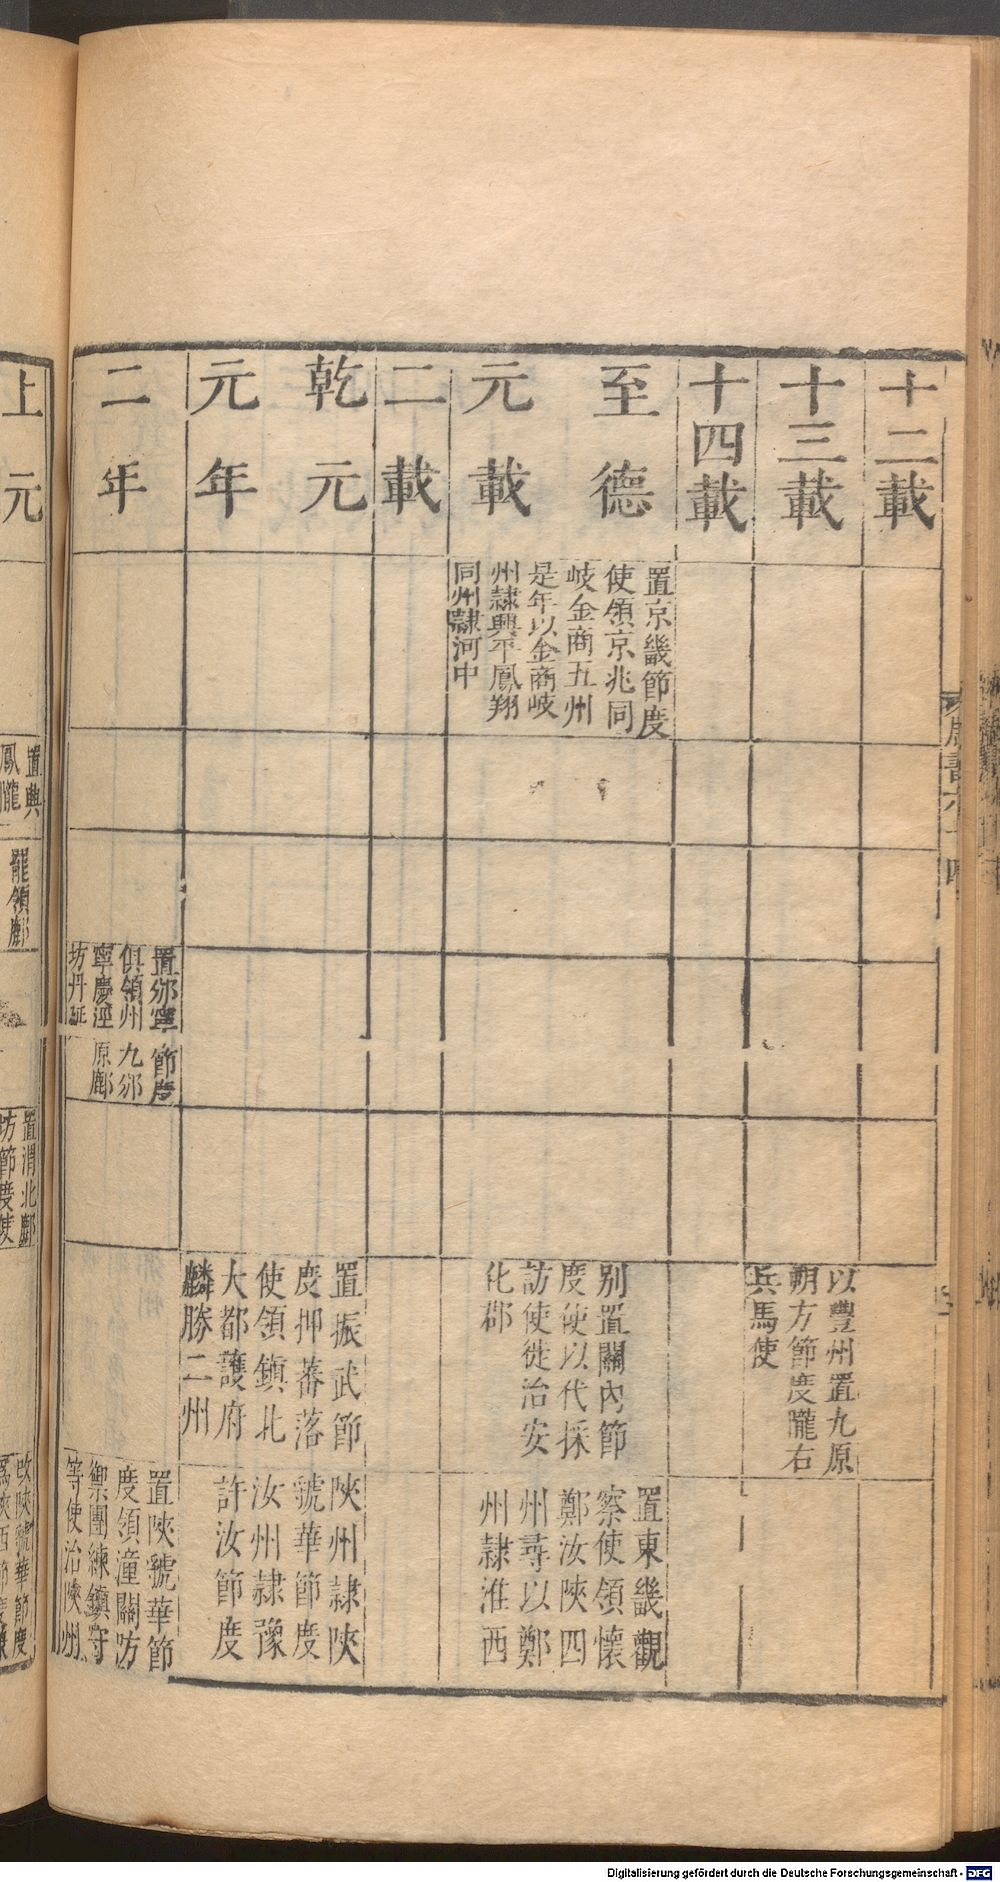 十二載
十三載
以豐州置九原
朔方節度隴右
兵馬使
十四載
至德
元載
置京畿節度
使領京兆同
岐金商五州
是年以金商岐
州隸興平鳳翔
同州隸河中
別置關內節
度使以代採
訪使徙治安
化郡
置東畿觀
察使領懷
鄭汝陝四
州尋以鄭
州隸淮西
二載
乾元
元年
置振武節
度押蕃落
使領鎮北
大都護府
麟勝二州
陝州隸陝
虢華節度
汝州隸豫
許汝節度
二年
置邠寧節度
俱領州九邠
寧慶涇原鄜
坊丹延
置陝虢華節
度領潼關防
禦團練鎮守
等使治陝州
上元
置興
鳳隴
龍領鄜
置渭北鄜
坊節度使
改陝虢華節度
為陝西節度
Digitalisierung gefördert durch die Deutsche Forschungsgemeinschaft - DFG